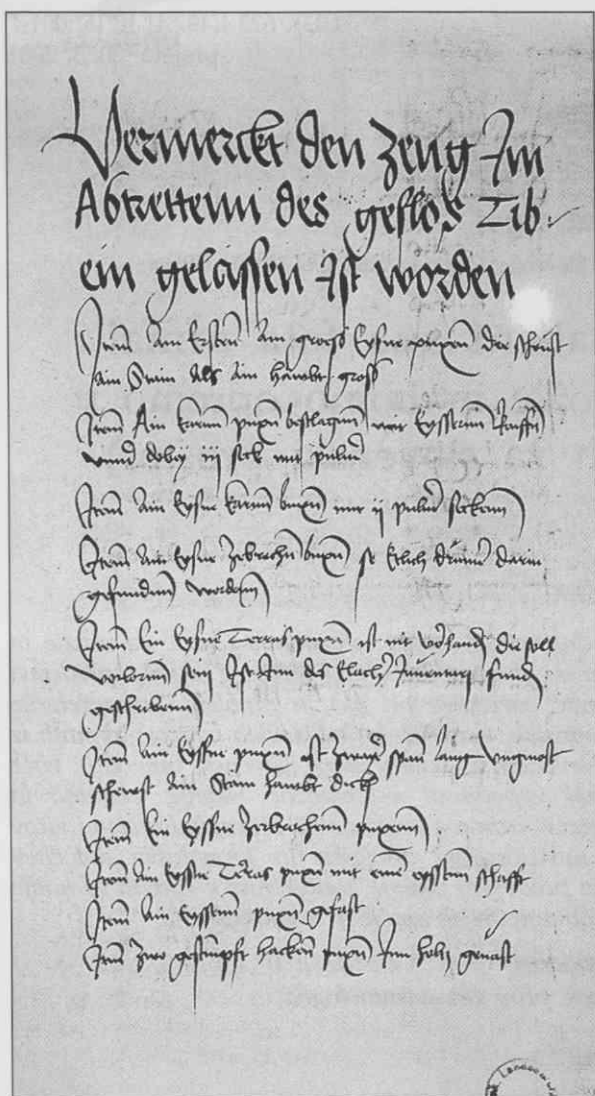 Vermerckt den Zeug Im
Abtrettenn des geslos Tib
ein gelassen Ist worden
Item Am Ersten Ain gross Eysne puxen die scheust
ain Stain Als Ain haubt gross
Item Ain karrnn puxn beslagenn mit Eyssernn Raiffn
vnnd dobey iij seck mit puluer
Item Ain Eysne karrnn buxn mit ij puluer seckenn
Item Ain Eysne Zebrochn buxn so Etlich drumer darin
gefundenn wordenn
Item Ein Eysne Terras puxn ist nit vorhanden die soll
verlornn sein Ist Inn des Inventary funden
geschribenn
Item Ain Eysne puxn ist Zwayer spann lang vngeuast
scheust Ain Stain haubt dick
Item Ein Eyssne Zerbrochenn puxenn
Item Ain Eyssne Terras puxn mit einem eyssenn schafft
Item Ain Eyssenn puxn gefast
Item Zwo gestumpft hacken puxn Inn holtz geuast